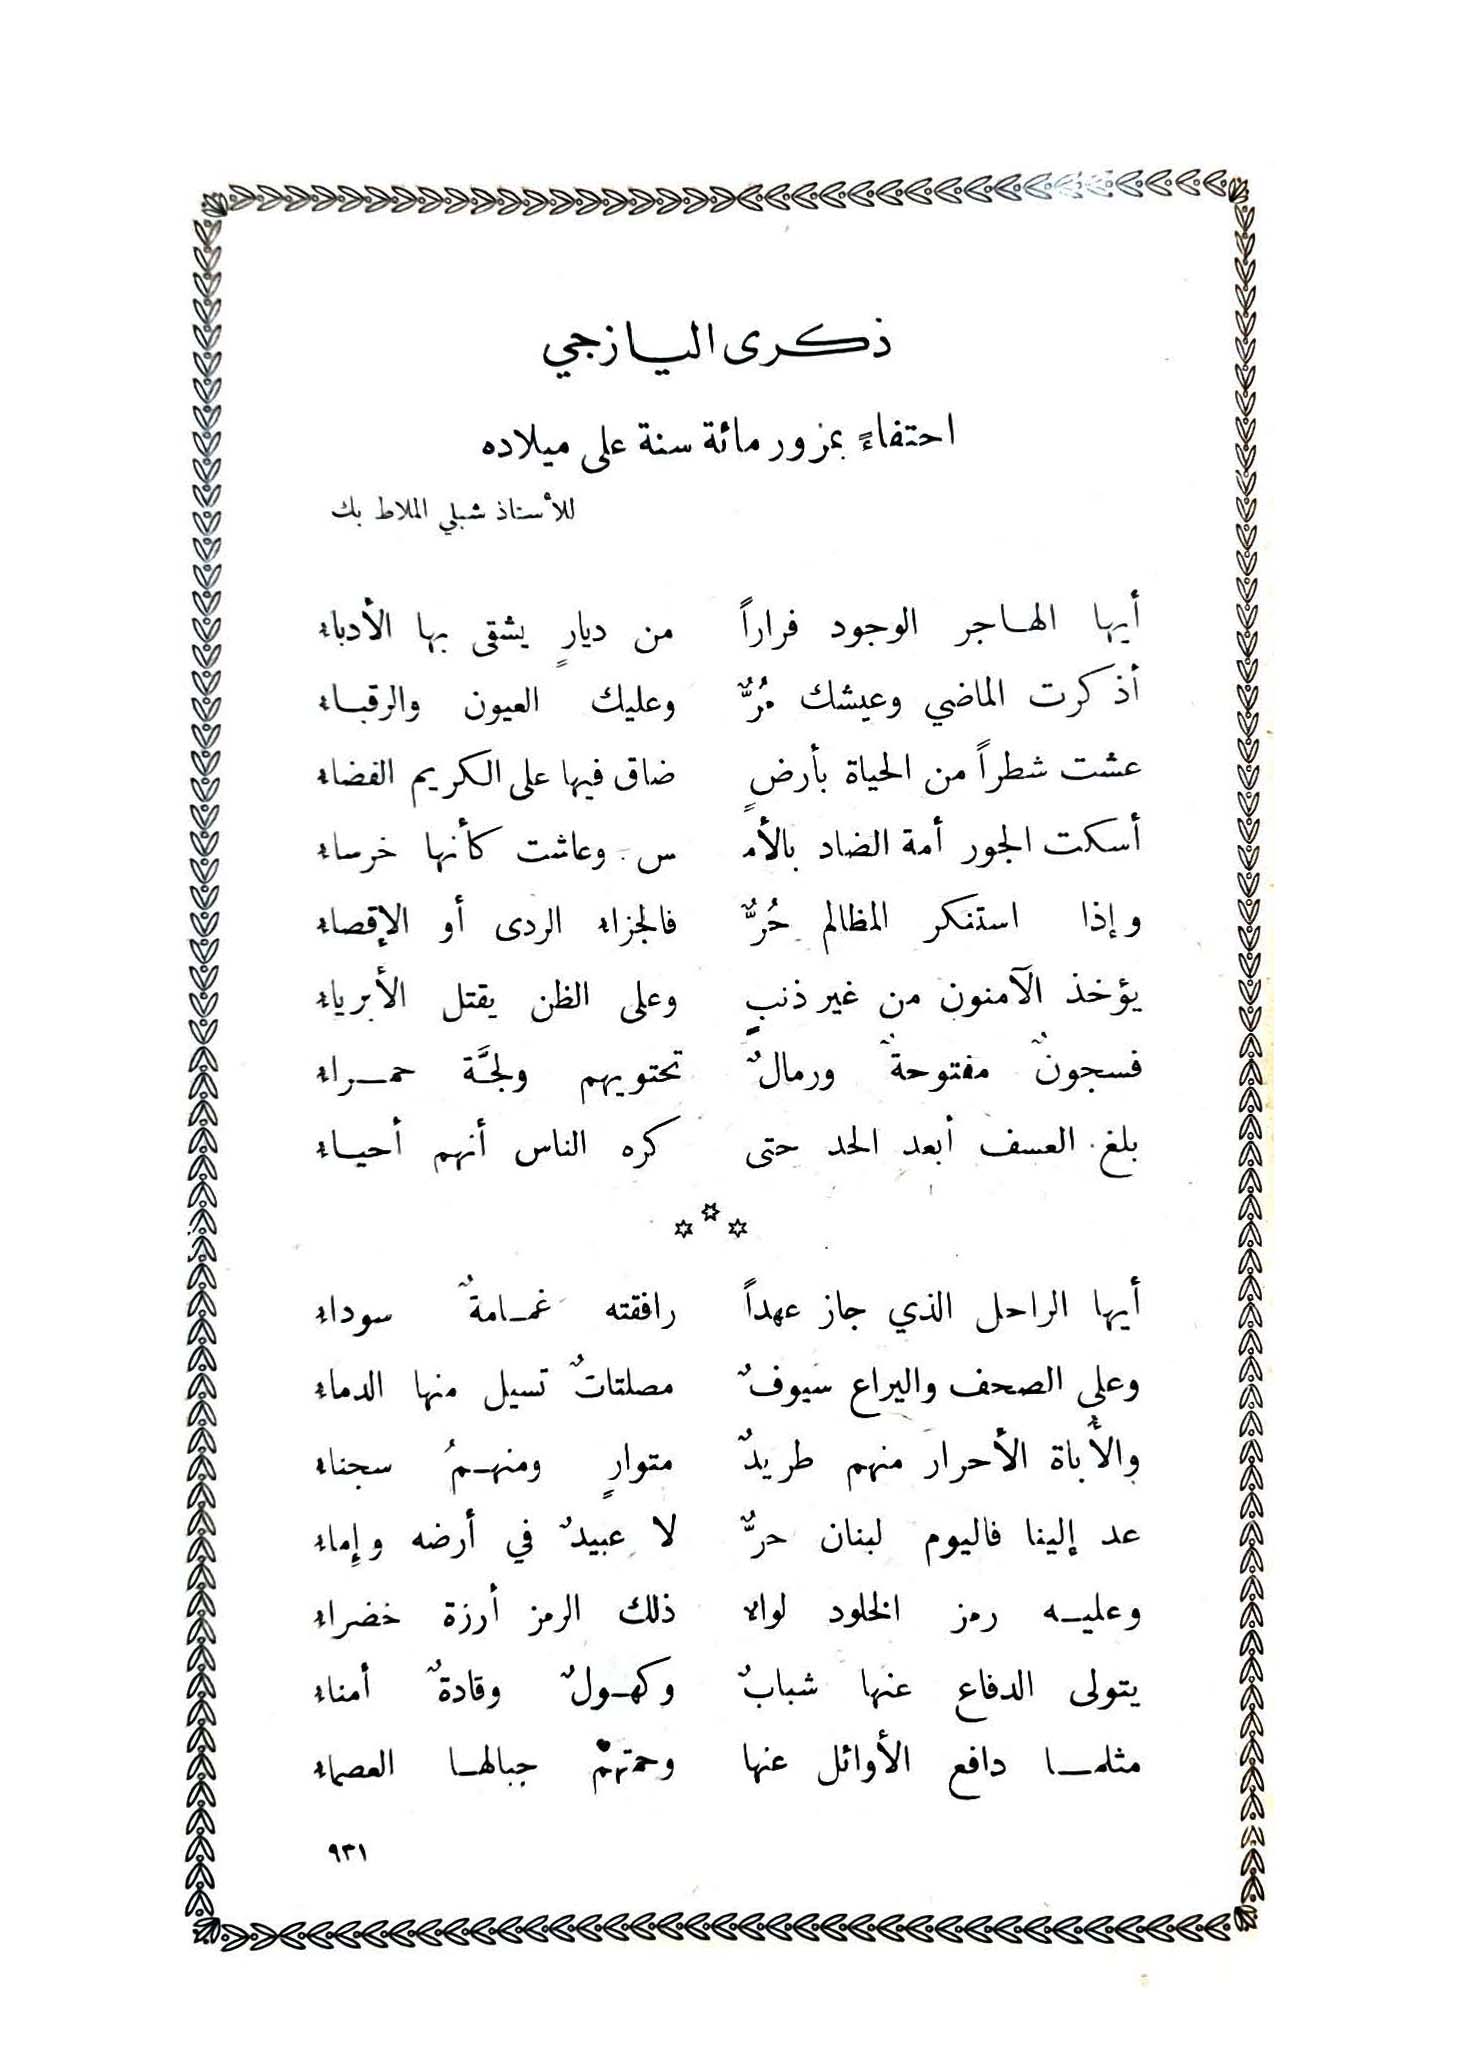 ذكرى اليازجي
احتفاءً بمرور مائة سنة على ميلاده
للأستاذ شبلي الملاط بك
أيها الهاجر الوجود فراراً من ديارٍ يشقى بها الأدباء
أذكرت الماضي وعيشك مُرٌّ وعليك العيون والرقباء
عشت شطراً من الحياة بأرضٍ ضاق فيها على الكريم الفضاء
أسكت الجور أمة الضاد بالأمـ س وعاشت كأنها خرساء
وإذا استنكر المظالم حُرٌّ فالجزاء الردى أو الإقصاء
يؤخذ الآمنون من غير ذنبٍ وعلى الظن يقتل الأبرياء
فسجونٌ مفتوحةٌ ورمالٌ تحتويهم ولجَّة حمراء
بلغ العسف أبعد الحد حتى كره الناس أنهم أحياء
***
أيها الراحل الذي جاز عهداً رافقته غمامةٌ سوداء
وعلى الصحف واليراع سيوفٌ مصلتاتٌ تسيل منها الدماء
والأُباة الأحرار منهم طريدٌ متوارٍ ومنهمُ سجناء
عد إلينا فاليوم لبنان حرٌّ لا عبيدٌ في أرضه وإماء
وعليه رمز الخلود لواء ذلك الرمز أرزة خضراء
يتولى الدفاع عنها شبابٌ وكهولٌ وقادةٌ أمناء
مثلما دافع الأوائل عنها وحمتهمْ جبالها العصماء
٩٣١